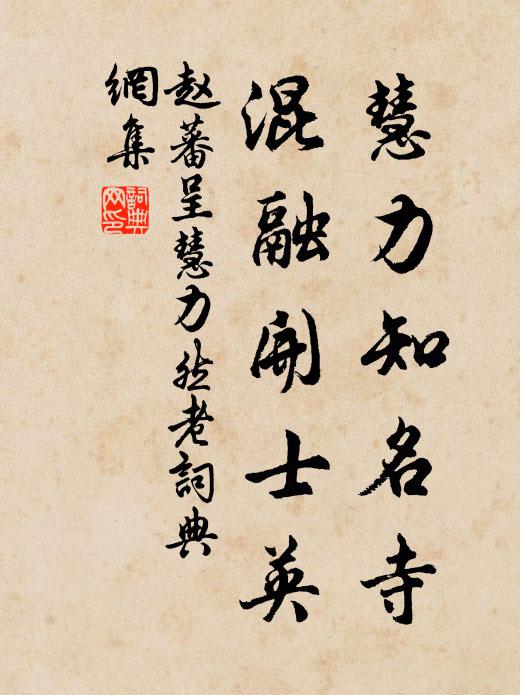 慧力知名寺
混融開士英
赵蕃呈慧力然老詞典
網集
詞典
网印